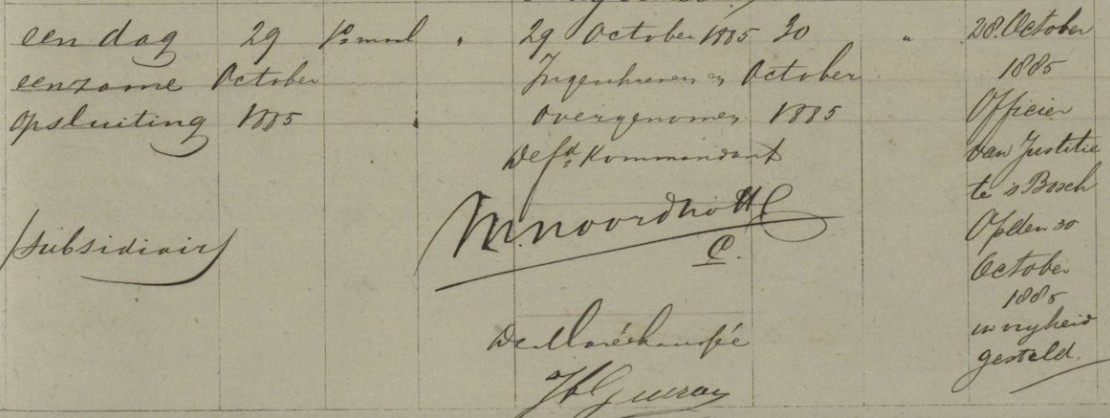 een dag
eenzame
opsluiting
(subsidiair)
29
October
1885
29 October 1885
Ingeschreven en
overgenomen
De fd Kommandant
M. Noordhoff
C.
De Maréchaussée
30
October
1885
28 October
1885
Officier
van Justitie
te 's Bosch
Op den 30
October
1885
in vryheid
gesteld.